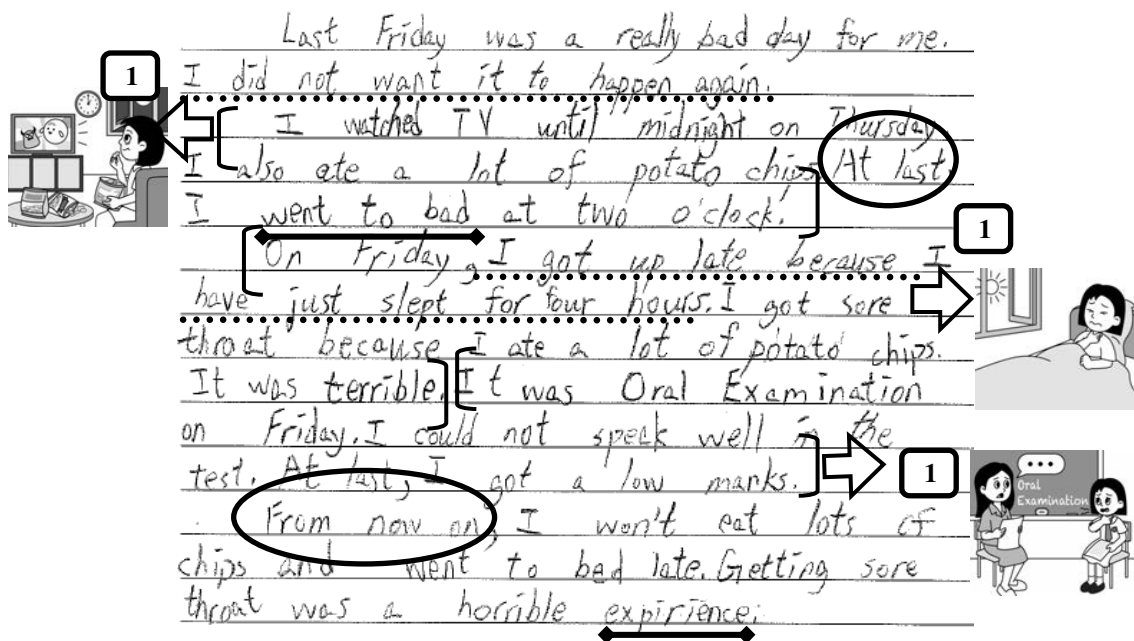 Last Friday was a really bad day for me.
1
I did not want it to happen again.
I watched TV until midnight on Thursday.
I also ate a lot of potato chips. At last,
I went to bad at two o'clock.
1
On Friday, I got up late because I
have just slept for four hours. I got sore
throat because I ate a lot of potato chips.
It was terrible. It was Oral Examination
on Friday. I could not speak well in the
test. At last, I got a low marks.
1
Oral
Examination
From now on, I won't eat lots of
chips and went to bed late. Getting sore
throat was a horrible expirience.